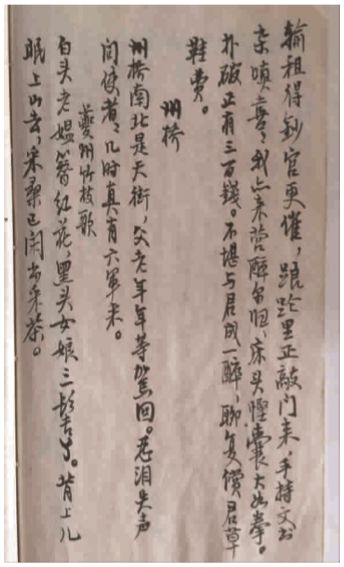 输租得钞官更催，踉跄里正敲门来，手持文书
杂嗔喜，我亦来营醉尔归，床头悭囊大如拳。
扑破正有三百钱。不堪与君成一醉，聊复偿君草
鞋费。
州桥
州桥南北是天街，父老年年等驾回。忍泪失声
问使者，几时真有六军来。
夔州竹枝歌
白头老媪簪红花，黑头女娘三髻丫。背上儿
眠上山去，采桑已闲当采茶。